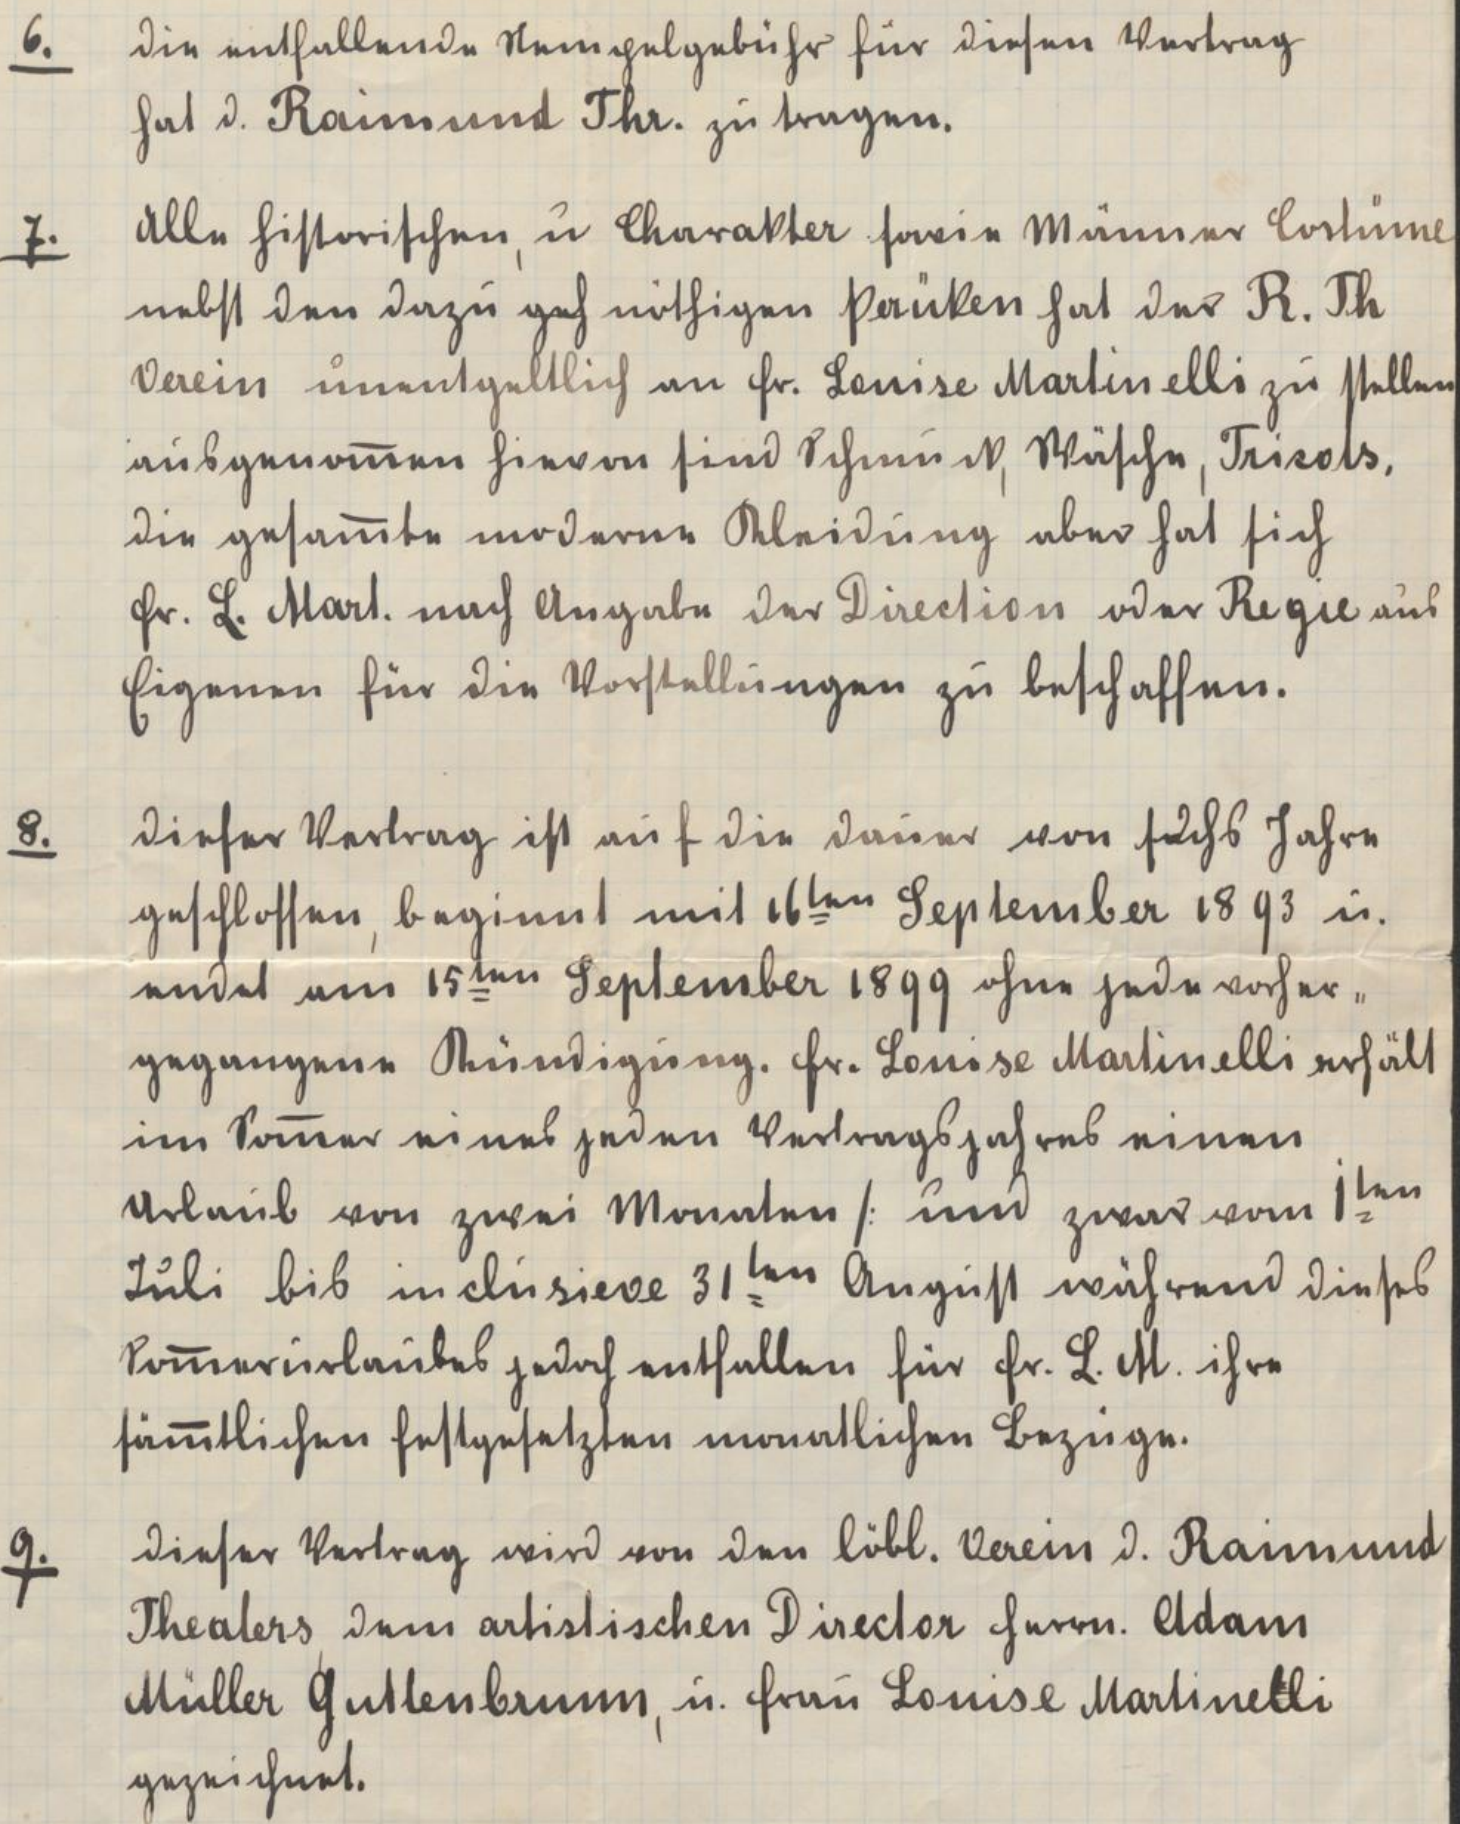 6. die entfallende Stempelgebühr für diesen Vertrag
hat d. Raimund Thr. zu tragen.
7. Alle historischen, u Charakter sowie Männer Costüme
nebst den dazu geh nöthigen Perüken hat der R. Th
Verein unentgeltlich an Fr. Louise Martinelli zu stellen
ausgenom̄en hievon sind Schmuck, Wäsche, Tricots,
die gesam̄te moderne Kleidung aber hat sich
Fr. L. Mart. nach Angabe der Direction oder Regie aus
Eigenen für die Vorstellungen zu beschaffen.
8. dieser Vertrag ist auf die dauer von sechs Jahre
geschlossen, beginnt mit 16ten September 1893 u.
endet am 15ten September 1899 ohne jede vorher„
gegangene Kündigung. Fr. Louise Martinelli erhält
im Som̄er eines jeden Vertragsjahres einen
Urlaub von zwei Monaten /: und zwar vom 1ten
Juli bis inclusieve 31ten August während dieses
Som̄erurlaubes jedoch entfallen für Fr. L. M. ihre
säm̄tlichen festgesetzten monatlichen Bezüge.
9. dieser Vertrag wird von den löbl. Verein d. Raimund
Theaters, dem artistischen Director Herrn. Adam
Müller Guttenbrunn, u. Frau Louise Martinelli
gezeichnet.